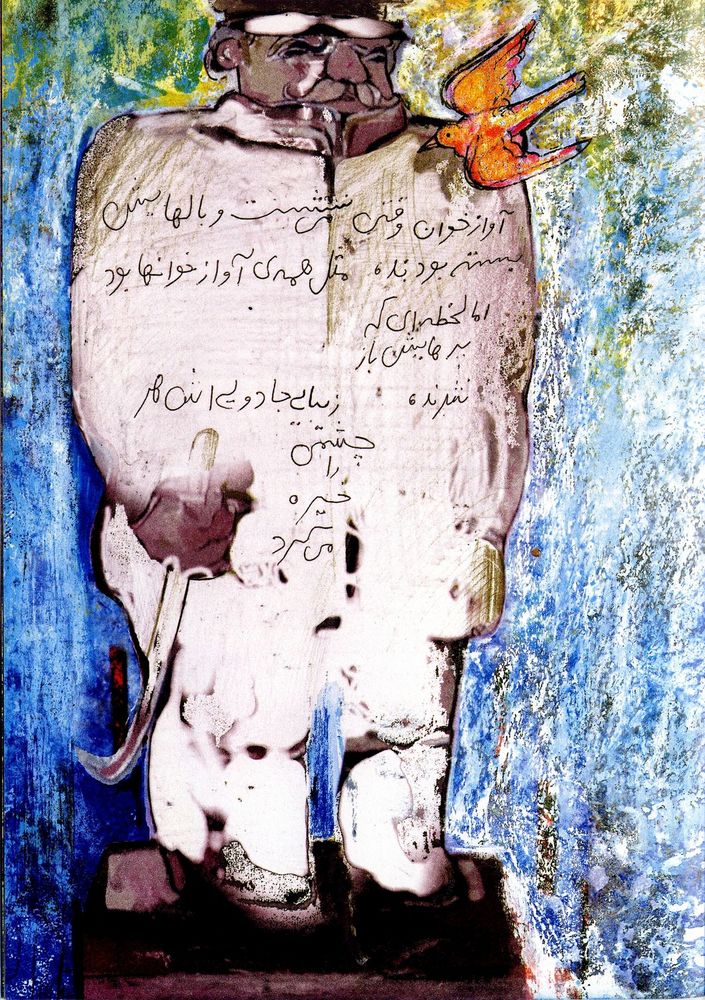 آوازخوان وقتی می‌نشست و بالهایش
بسته بود بنده مثل همه‌ی آوازخوانها بود
اما لحظه‌ای که
پرهایش باز
شدند زیبایی جادویی‌اش هر
چشمی
را
خیره
می‌کرد